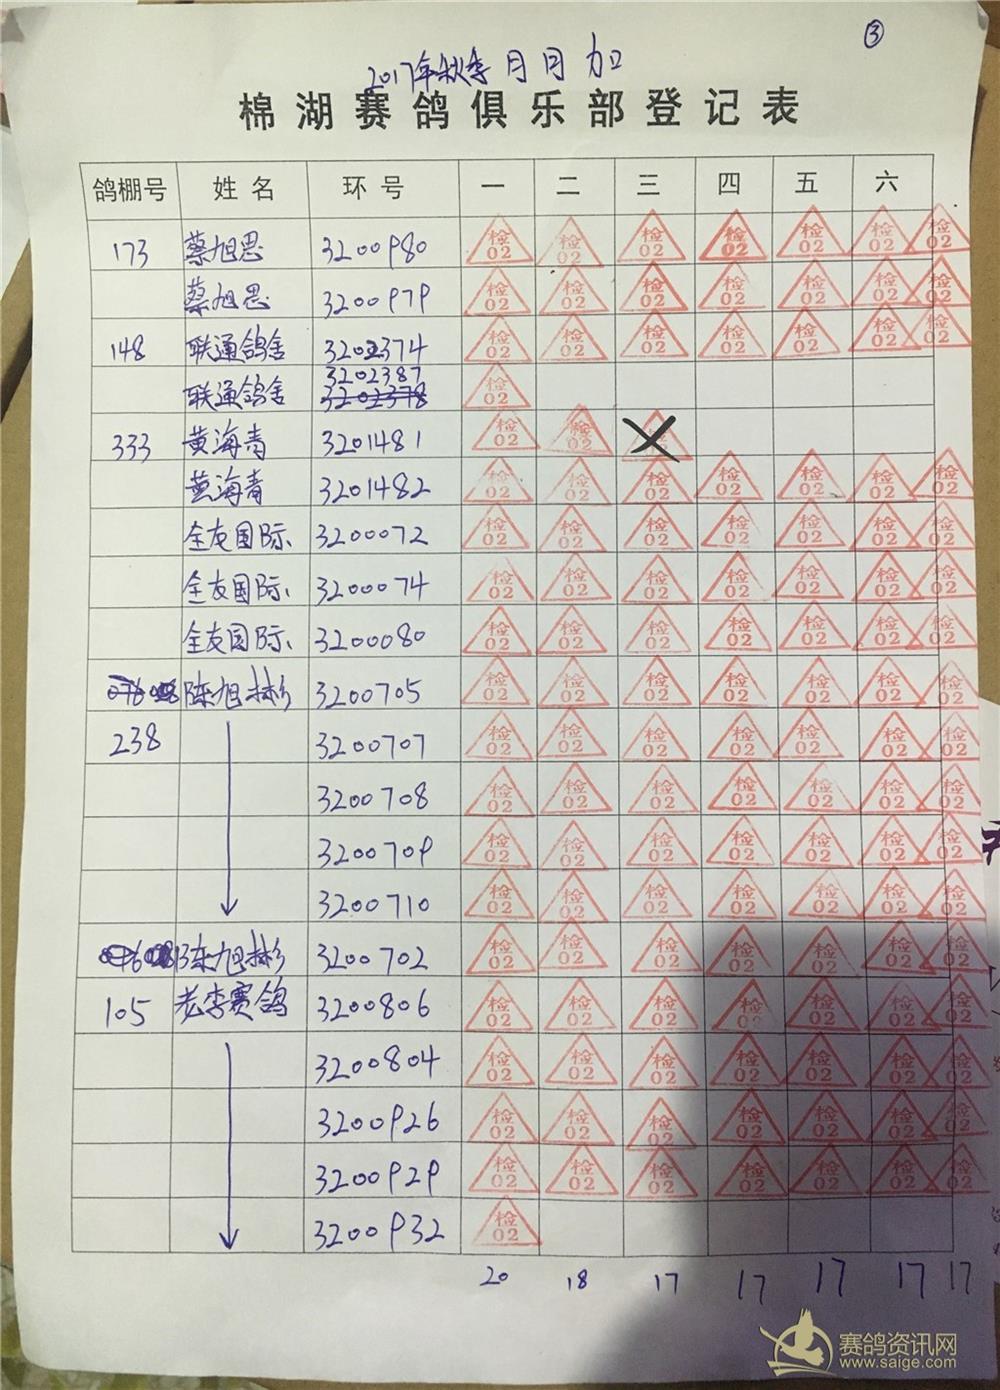 ③
2017年秋季月月加
棉湖赛鸽俱乐部登记表
鸽棚号 姓名 环号 一 二 三 四 五 六
173 蔡旭思 3200980 检02 检02 检02 检02 检02 检02 检02
蔡旭思 3200979 检02 检02 检02 检02 检02 检02 检02
148 联通鸽舍 3202374 检02 检02 检02 检02 检02 检02 检02
3202387
联通鸽舍 3202378 检02
333 黄海青 3201481 检02 检02
黄海青 3201482 检02 检02 检02 检02 检02 检02 检02
全友国际 3200072 检02 检02 检02 检02 检02 检02 检02
全友国际 3200074 检02 检02 检02 检02 检02 检02 检02
全友国际 3200080 检02 检02 检02 检02 检02 检02 检02
陈旭彬 3200705 检02 检02 检02 检02 检02 检02 检02
238 3200707 检02 检02 检02 检02 检02 检02 检02
3200708 检02 检02 检02 检02 检02 检02 检02
3200709 检02 检02 检02 检02 检02 检02 检02
3200710 检02 检02 检02 检02 检02 检02 检02
陈旭彬 3200702 检02 检02 检02 检02 检02 检02 检02
105 老李赛鸽 3200806 检02 检02 检02 检02 检02 检02 检02
3200804 检02 检02 检02 检02 检02 检02 检02
3200926 检02 检02 检02 检02 检02 检02 检02
3200929 检02 检02 检02 检02 检02 检02 检02
3200932 检02
20 18 17 17 17 17 17
赛鸽资讯网
www.saige.com